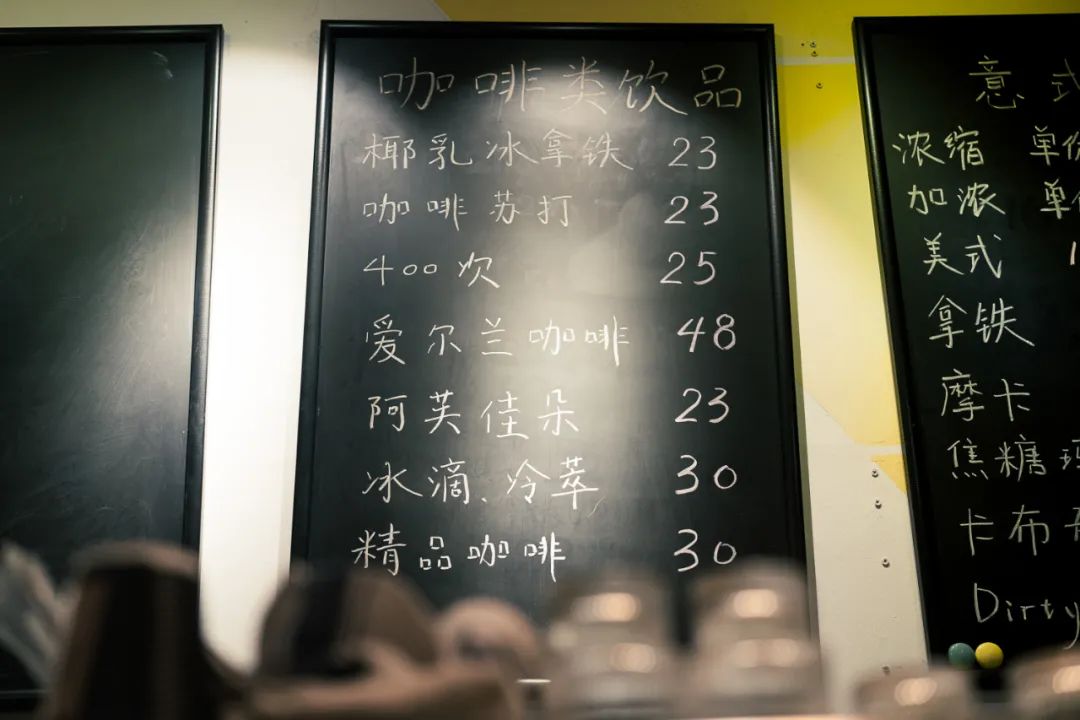 咖啡类饮品
椰乳冰拿铁 23
咖啡苏打 23
400次 25
爱尔兰咖啡 48
阿芙佳朵 23
冰滴、冷萃 30
精品咖啡 30
意式
浓缩 单份
加浓 单份
美式 1
拿铁
摩卡
焦糖玛
卡布
Dirty